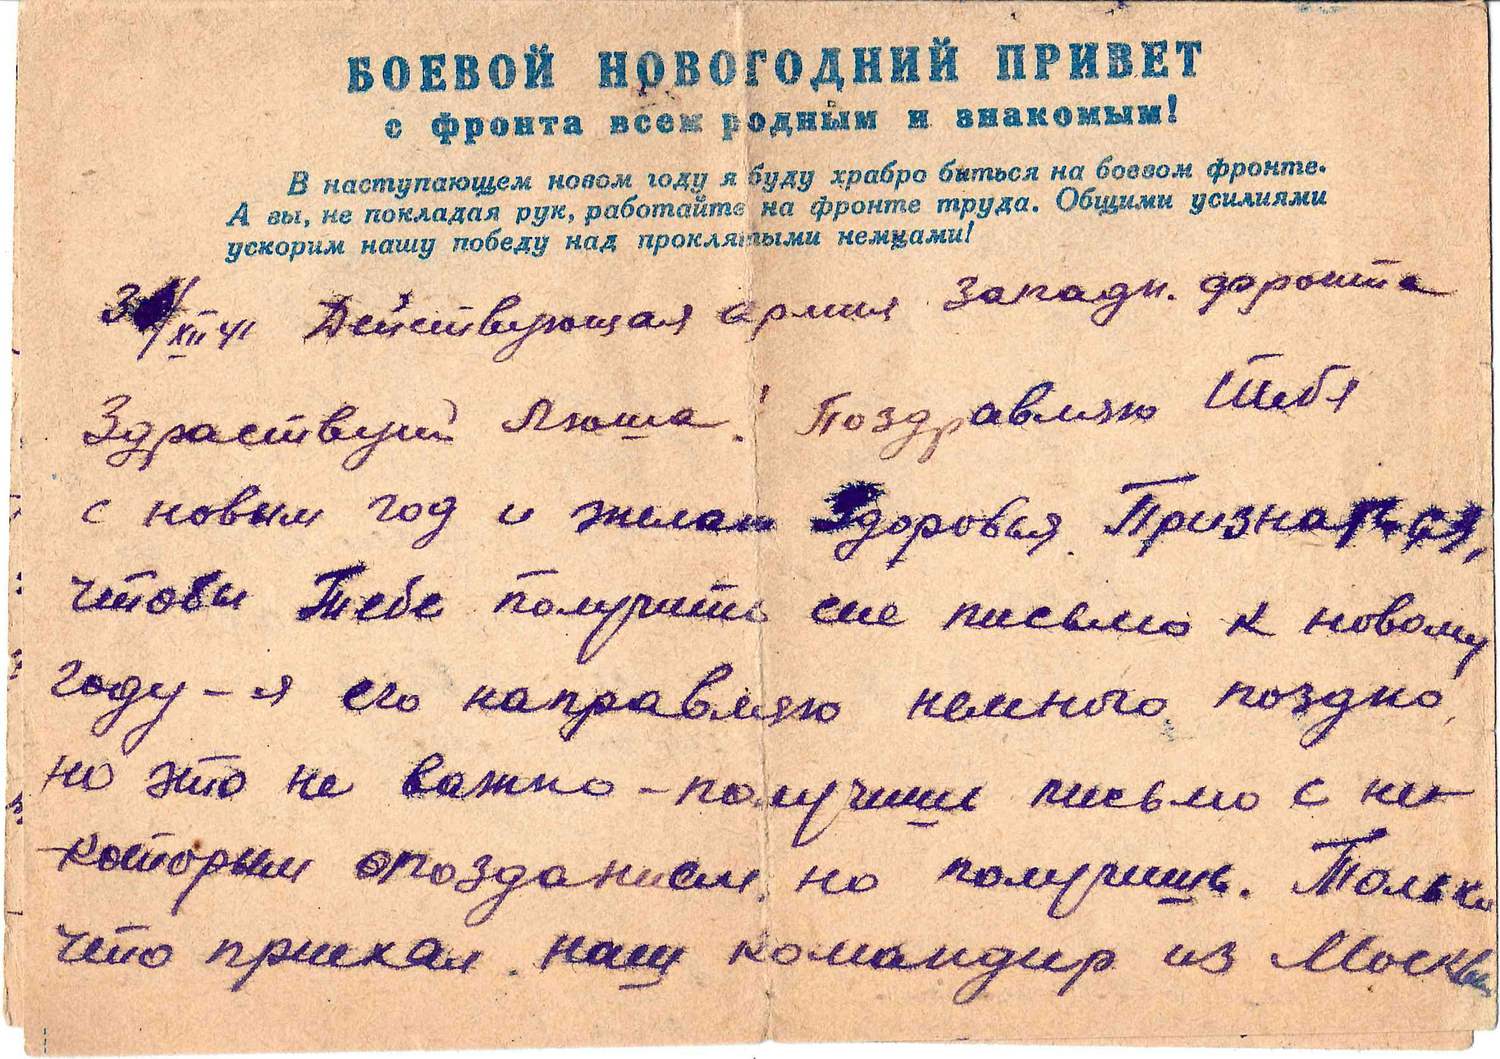 БОЕВОЙ НОВОГОДНИЙ ПРИВЕТ
с фронта всем родным и знакомым!
В наступающем новом году я буду храбро биться на боевом фронте.
А вы, не покладая рук, работайте на фронте труда. Общими усилиями
ускорим нашу победу над проклятыми немцами!
XII 41 Действующая армия Западн. фронта
Здраствуй Люша! Поздравляю Тебя
с новым год и желаю Здоровья. Признаться,
чтобы Тебе получить сие письмо к новому
году – я его направляю немного поздно,
но это не важно – получишь письмо с не-
которым опозданием, но получишь. Только
что приехал наш командир из Москвы